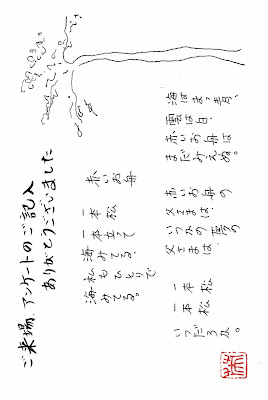 赤いお舟
一本松
一本立って
海みてる、
私もひとりで
海みてる。
海はまっ青、
雲は白、
赤いお舟は
まだみえぬ。
赤いお舟の
父さまは、
いつかの夢の
父さまは、
一本松
一本松
いつだろか。
ご来場、アンケートのご記入
ありがとうございました